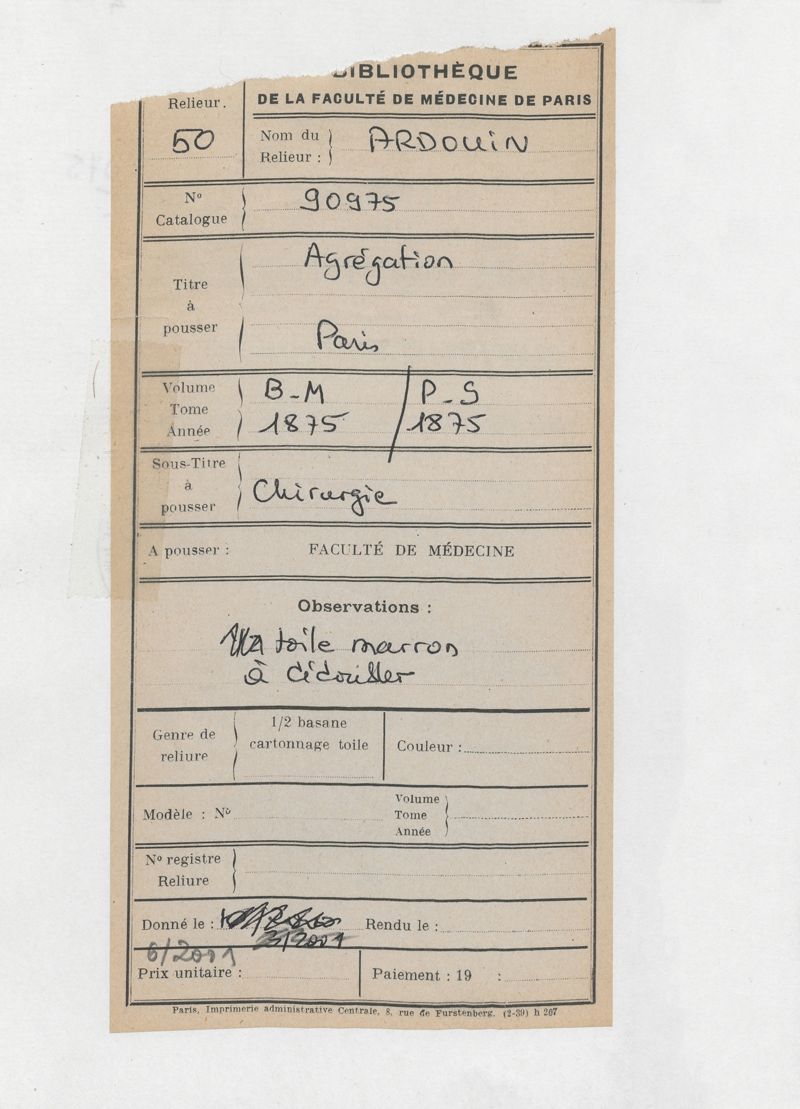 BIBLIOTHÈQUE
DE LA FACULTÉ DE MÉDECINE DE PARIS
Relieur.
50
Nom du
Relieur :
ARDOUIN
Nº
Catalogue
90975
Titre
à
pousser
Agrégation
Paris
Volume
Tome
Année
B-M / P-S
1875 1875
Sous-Titre
à
pousser
Chirurgie
A pousser : FACULTÉ DE MÉDECINE
Observations :
toile marron
à
Genre de
reliure
1/2 basane
cartonnage toile
Couleur :
Modèle : Nº
Volume
Tome
Année
Nº registre
Reliure
Donné le :
Rendu le :
3/2001
6/2001
Prix unitaire :
Paiement : 19 :
Paris, Imprimerie administrative Centrale, 8, rue de Furstenberg. (2-39) h 267